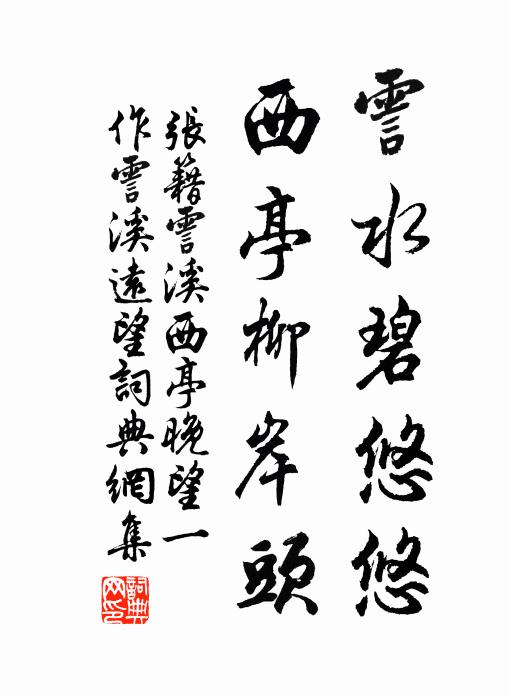 霅水碧悠悠
西亭柳岸頭
張籍霅溪西亭晚望一
作霅溪遠望詞典網集
詞典網印